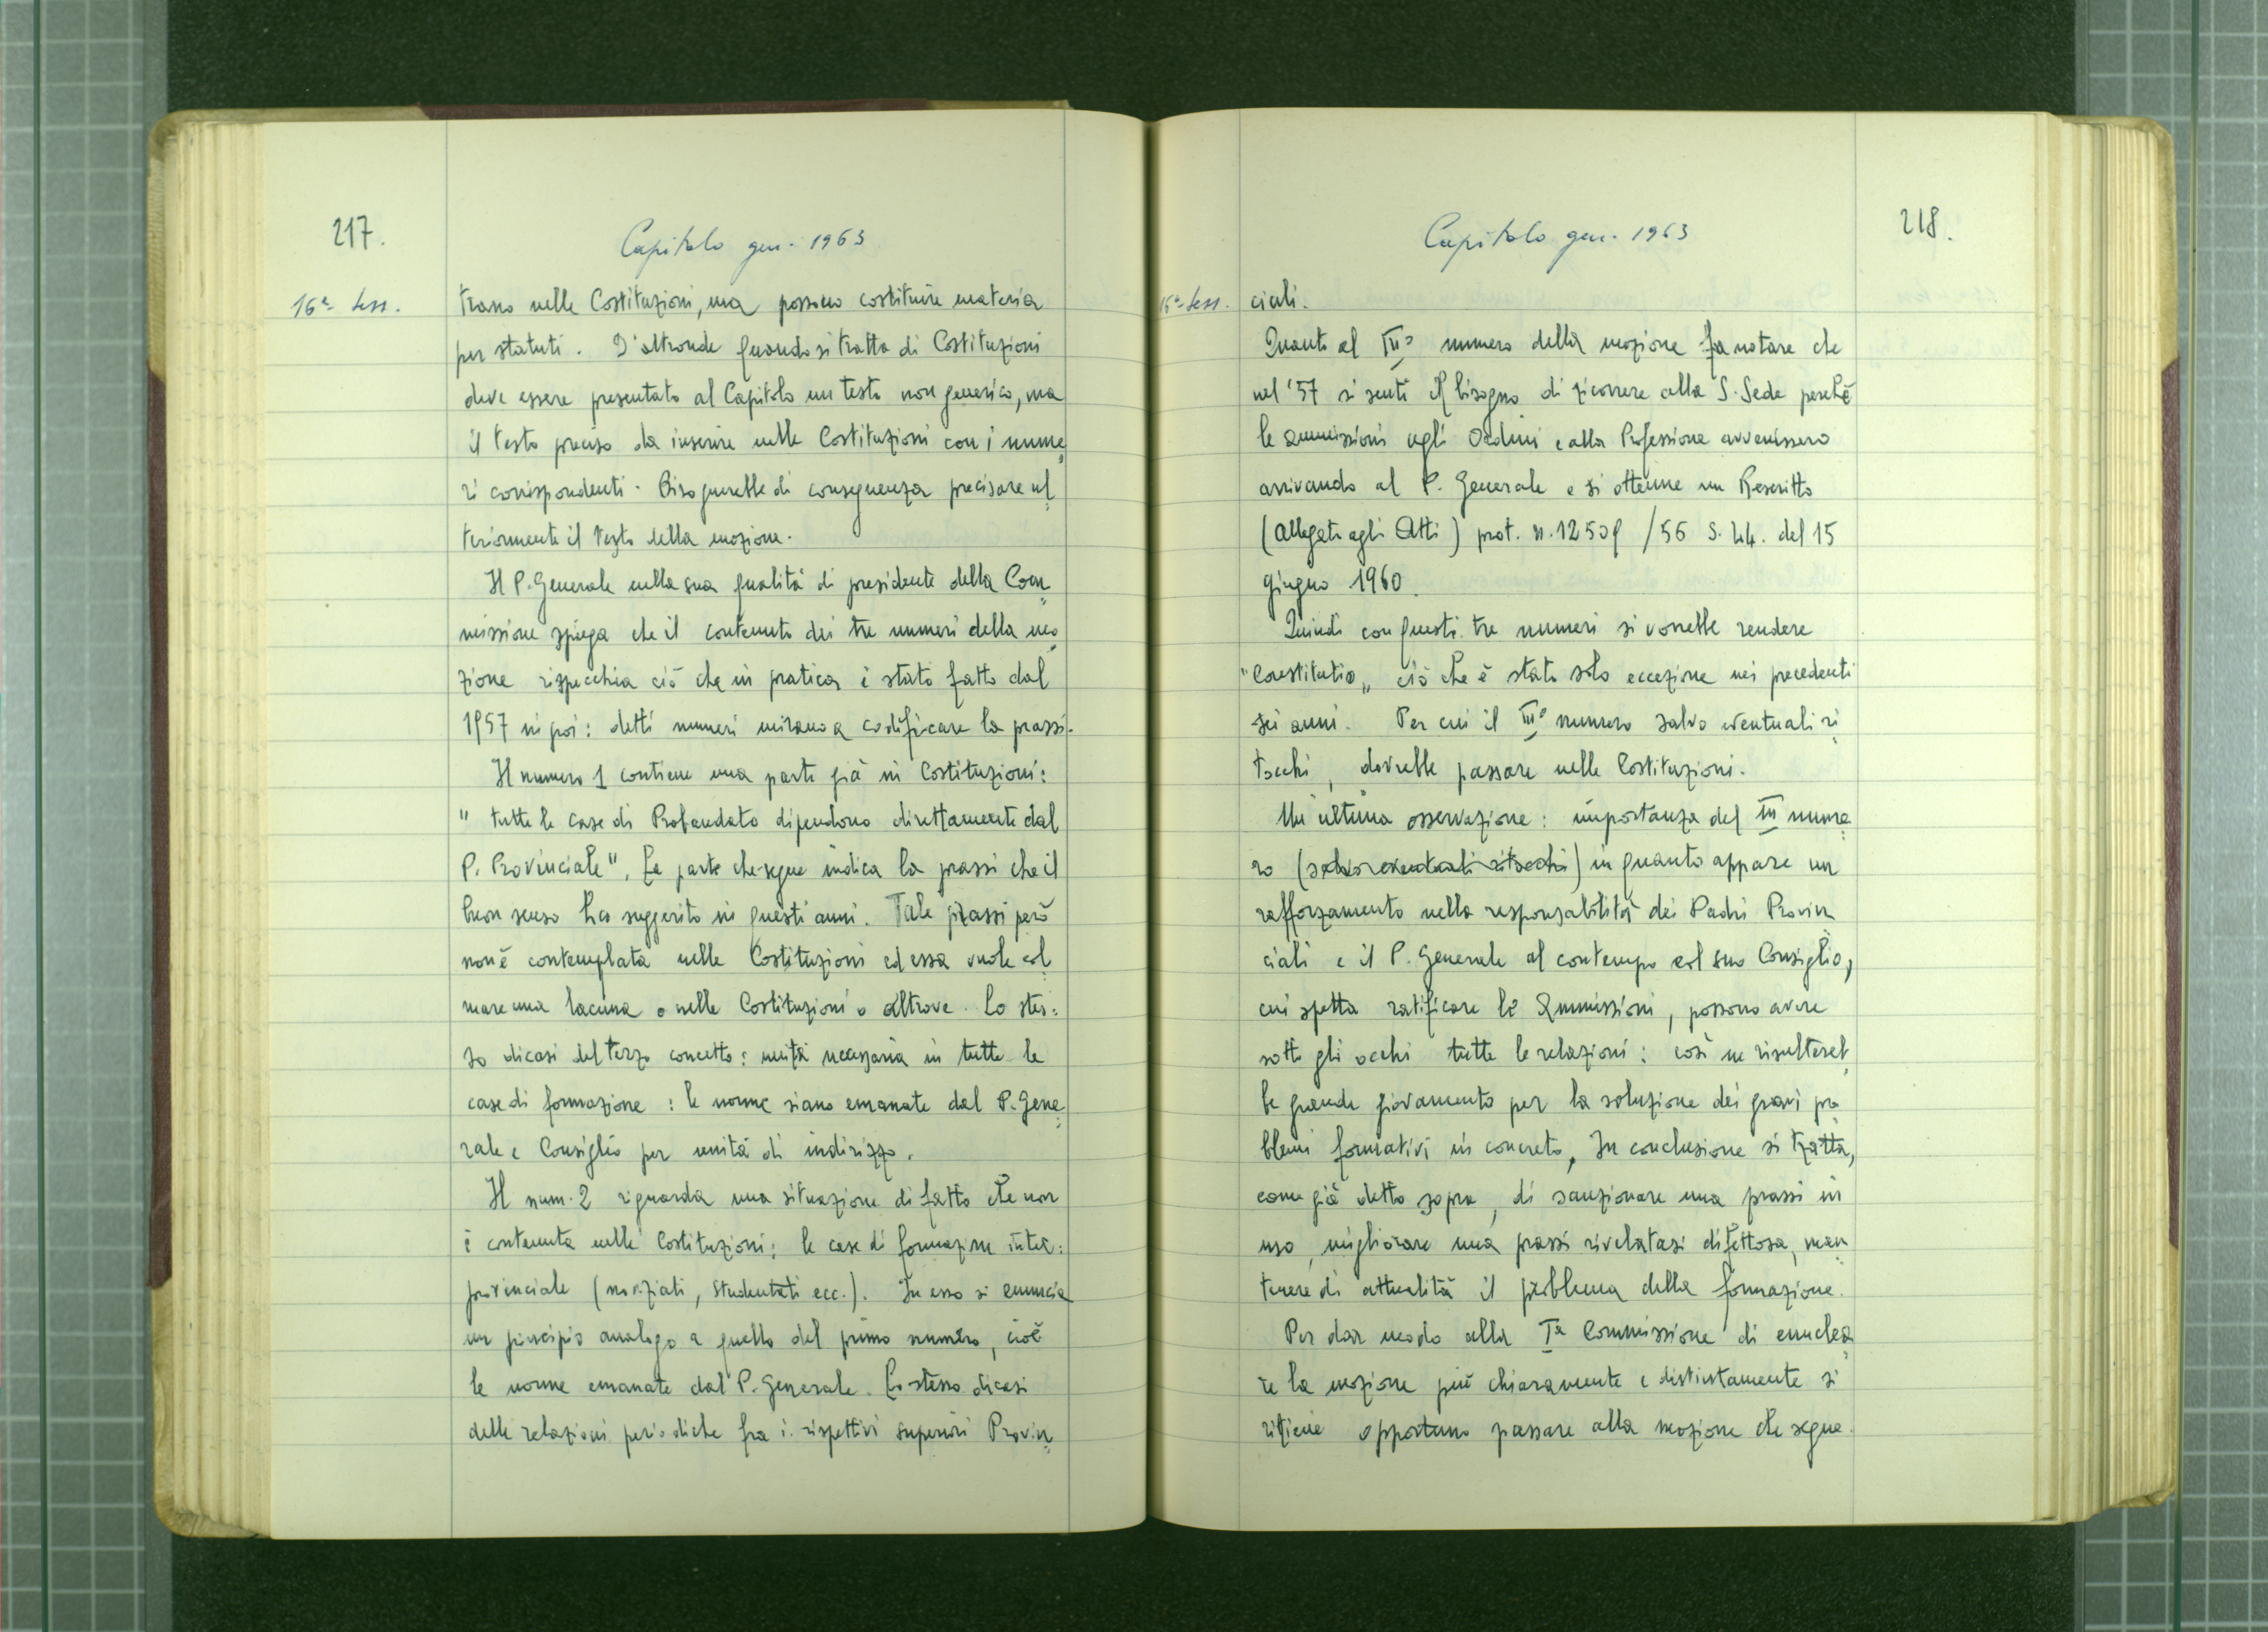 217.
Capitolo gen. 1963
16ª Sess.
trano nelle Costituzioni, ma possono costituire materia
per statuti. D'altronde quando si tratta di Costituzioni
deve essere presentato al Capitolo un testo non generico, ma
il testo preciso da inserire nelle Costituzioni con i nume
ri corrispondenti. Bisognerebbe di conseguenza precisare ul
teriormente il testo della mozione.
Il P. Generale nella sua qualità di presidente della Com
missione spiega che il contenuto dei tre numeri della mo
zione rispecchia ciò che in pratica è stato fatto dal
1957 in poi: detti numeri mirano a codificare la prassi.
Il numero 1 contiene una parte già in Costituzioni:
" tutte le case di Probandato dipendono direttamente dal
P. Provinciale". La parte che segue indica la prassi che il
buon senso ha suggerito in questi anni. Tale prassi però
non è contemplata nelle Costituzioni ed essa vuole col
mare una lacuna o nelle Costituzioni o altrove. Lo stes:
so dicasi del terzo concetto: unità necessaria in tutte le
case di formazione: le norme siano emanate dal P. Gene
rale e Consiglio per unità di indirizzo.
Il num. 2 riguarda una situazione di fatto che non
è contenuta nelle Costituzioni: le case di formazione inter:
provinciale (noviziati, studentati ecc.). In esso si enuncia
un principio analogo a quello del primo numero, cioè
le norme emanate dal P. Generale. Lo stesso dicasi
delle relazioni periodiche fra i rispettivi superiori Provin
218.
Capitolo gen. 1963
16ª Sess.
ciali.
Quanto al III° numero della mozione fa notare che
nel '57 si sentì il bisogno di ricorrere alla S. Sede perché
le ammissioni agli Ordini e alla Professione avvenissero
arrivando al P. Generale e si ottenne un Rescritto
(allegato agli Atti) prot. n. 12509 /56 S. 44. del 15
giugno 1960.
Quindi con questi tre numeri si vorrebbe rendere
"Constitutio" ciò che è stato solo eccezione nei precedenti
sei anni. Per cui il III° numero salvo eventuali ri
tocchi, dovrebbe passare nelle Costituzioni.
Un'ultima osservazione: importanza del III nume
ro (salvo eventuali ritocchi) in quanto appare un
rafforzamento nella responsabilità dei Padri Provin
ciali e il P. Generale al contempo col suo Consiglio,
cui spetta ratificare le Ammissioni, possono avere
sotto gli occhi tutte le relazioni: così ne risultereb
be grande giovamento per la soluzione dei gravi pro
blemi formativi in concreto. In conclusione si tratta,
come già detto sopra, di sanzionare una prassi in
uso, migliorare una prassi rivelatasi difettosa, man
tenere di attualità il problema della formazione.
Per dar modo alla Iª Commissione di enuclea
re la mozione più chiaramente e distintamente si
ritiene opportuno passare alla mozione che segue.